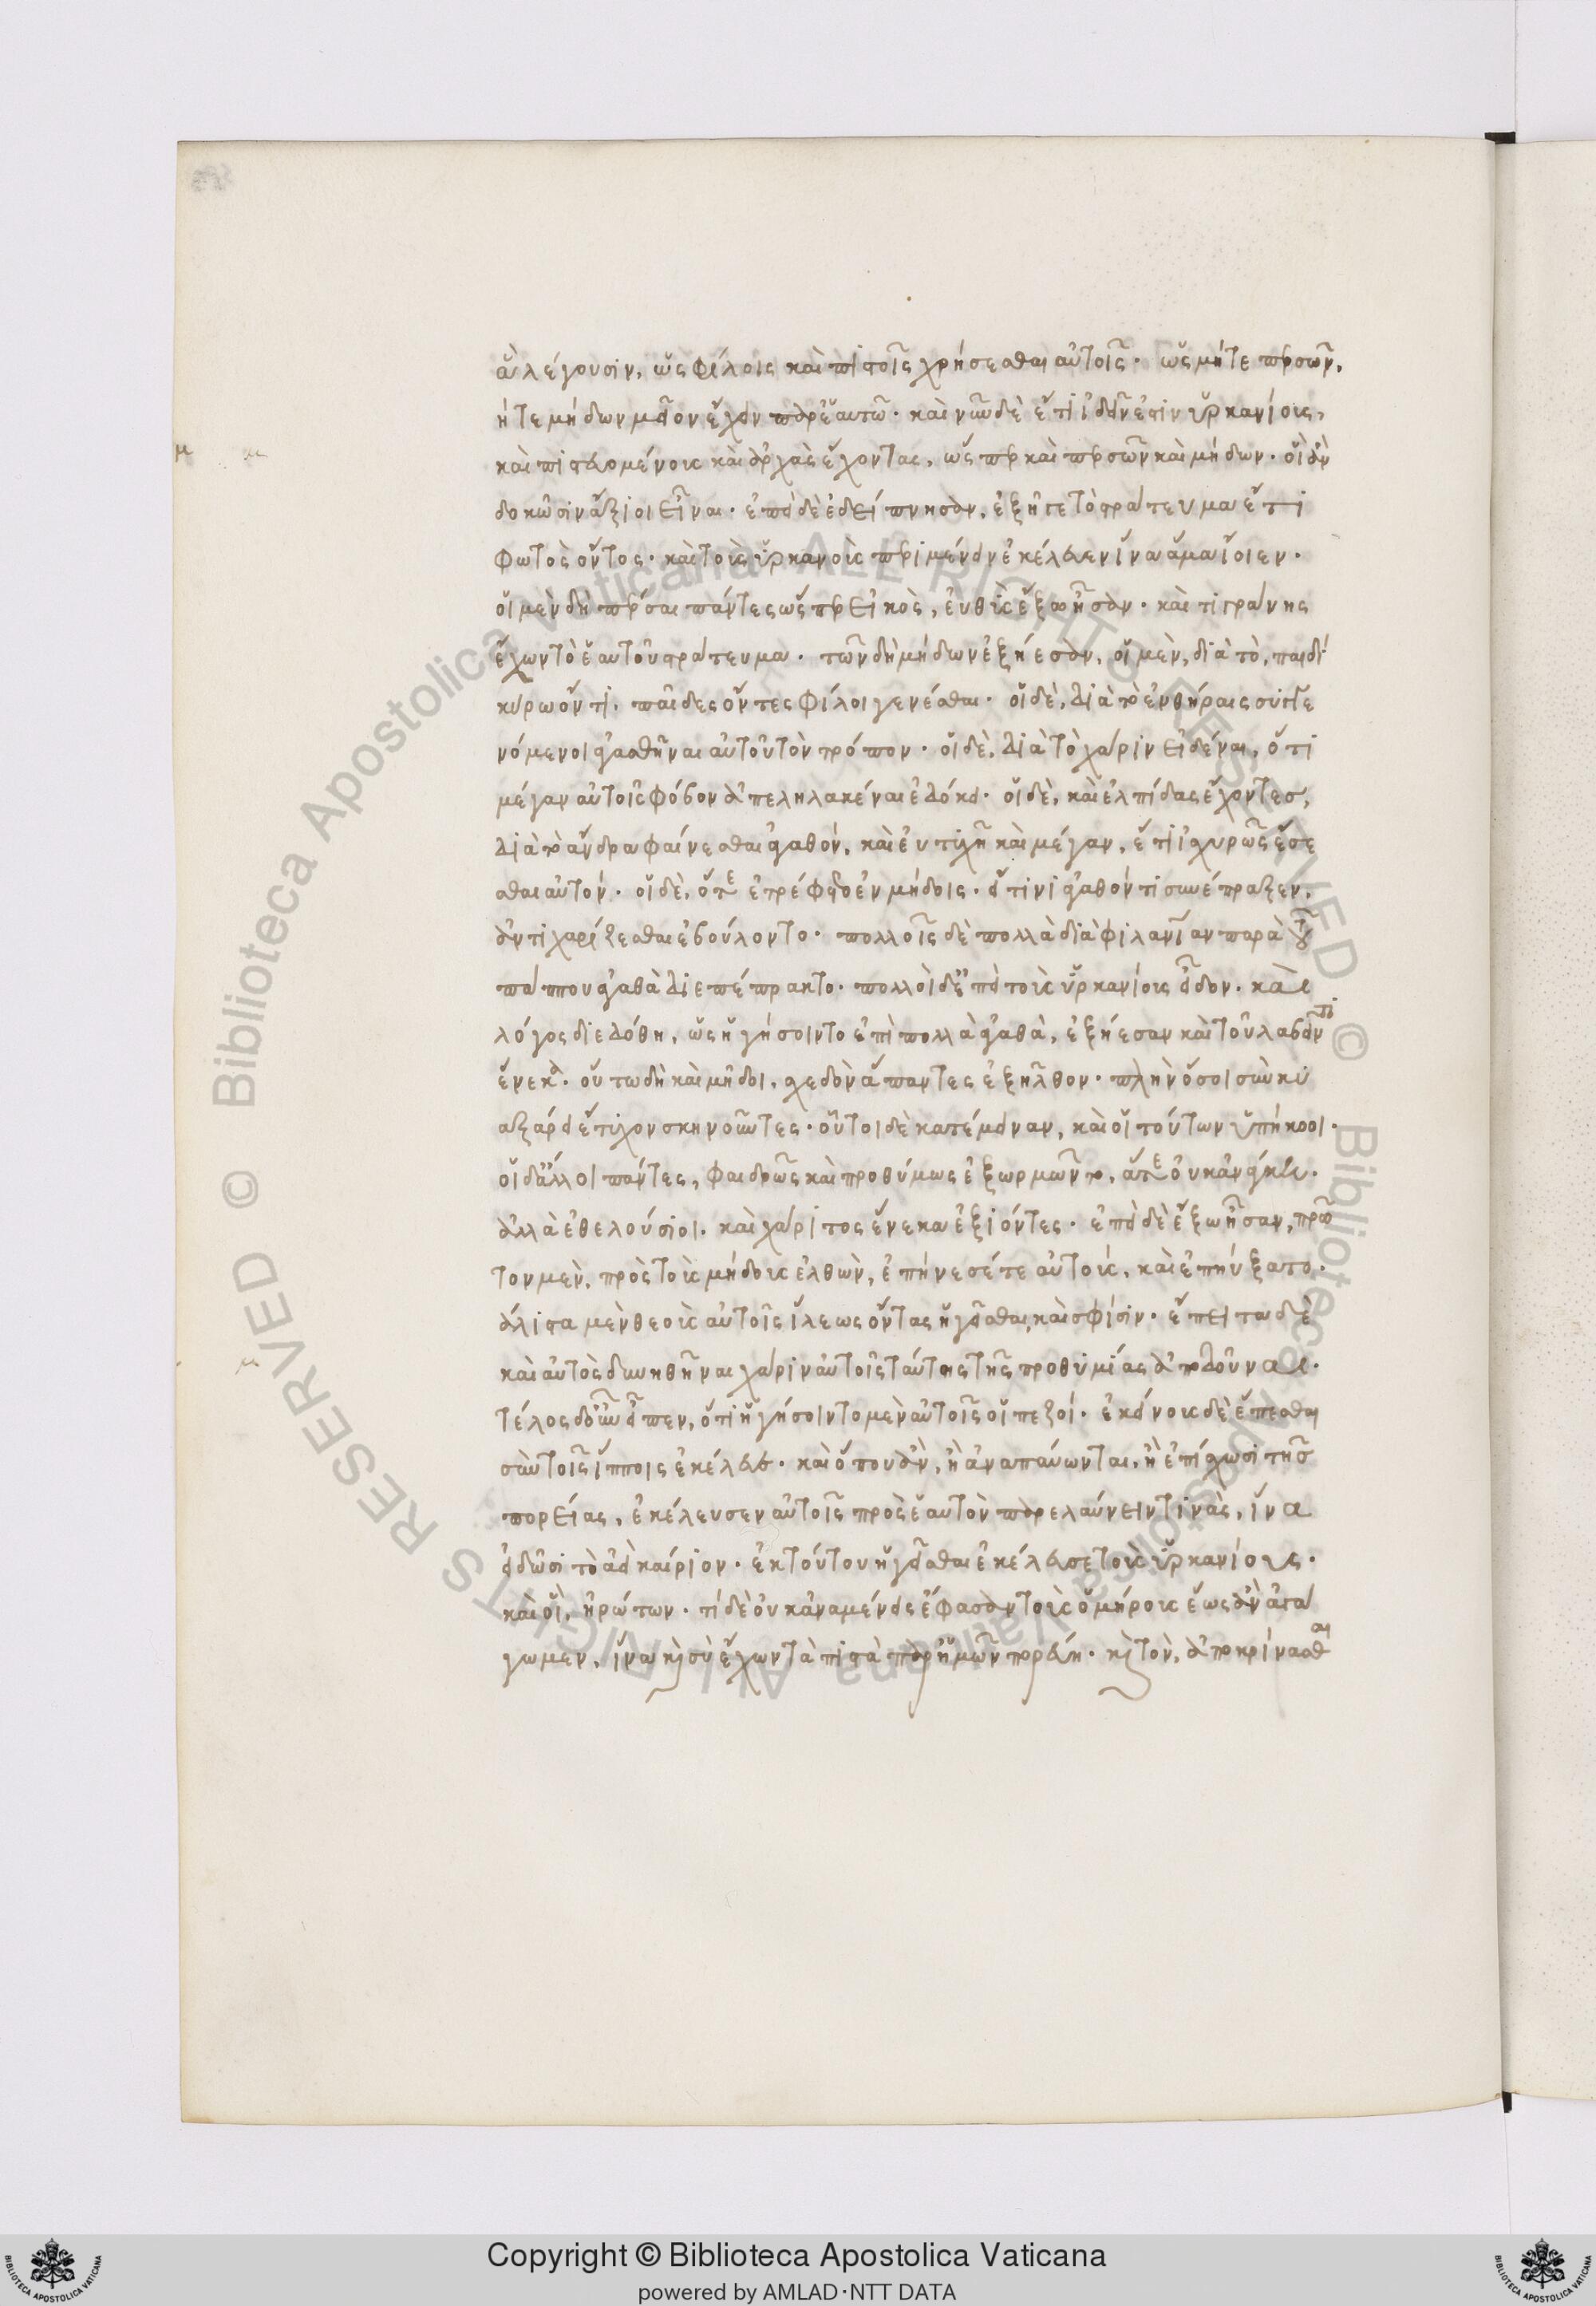 ἃ λέγουσιν, ὡς φίλοις καὶ πιστοῖς χρήσεσθαι αὐτοῖς· ὡς μήτε περσῶν,
ήτε μήδων μεῖον ἔχειν παρ' ἑαυτῶ· καὶ νῦν δὲ ἔτι ἰδεῖν ἐστὶν ὑρκανίοις,
καὶ πιστευομένοις καὶ ἀρχὰς ἔχοντας, ὥσπερ καὶ περσῶν καὶ μήδων· οἳ ἂν
δοκῶσιν ἄξιοι εἶναι· ἐπεὶ δὲ ἐδείπνησαν, ἐξῆγε τὸ στράτευμα ἔτι
φωτὸς ὄντος· καὶ τοὺς ὑρκανοὺς περιμένειν ἐκέλευεν ἵνα ἅμα ἴοιεν·
οἱ μὲν δὴ πέρσαι πάντες ὥσπερ εἰκὸς, ἐυθὺς ἔξω ἦσαν· καὶ τιγράνης
ἔχων τὸ ἑαυτοῦ στράτευμα· τῶν δὴ μήδων ἐξήεσαν, οἱ μὲν, διὰ τὸ, παιδὶ
κύρω ὄντι, παῖδες ὄντες φίλοι γενέσθαι· οἱ δὲ, διὰ τὸ ἐν θήραις συγγε
νόμενοι ἀγασθῆναι αὐτοῦ τὸν τρόπον· οἱ δὲ, διὰ τὸ χάριν εἰδέναι, ὅτι
μέγαν αὐτοῖς φόβον ἀπεληλακέναι ἐδόκει· οἱ δὲ, καὶ ἐλπίδας ἔχοντες,
διὰ τὸ ἄνδρα φαίνεσθαι ἀγαθόν, καὶ ἐυτυχῆ καὶ μέγαν, ἔτι ἰσχυρῶς ἔσε
σθαι αὐτόν· οἱ δὲ, ὅτε ἐτρέφετο ἐν μήδοις· εἴ τινι ἀγαθόν τι συνέπραξεν,
ἀντιχαρίζεσθαι ἐβούλοντο· πολλοῖς δὲ πολλὰ διὰ φιλανίαν παρὰ τοῦ
πάππου ἀγαθὰ διεπέπρακτο· πολλοὶ δ' ἐπεὶ τοὺς ὑρκανίους εἶδον· καὶ
λόγος διεδόθη, ὡς ἡγήσοιντο ἐπὶ πολλὰ ἀγαθὰ, ἐξήεσαν καὶ τοῦ λαβεῖν τι
ἕνεκα· οὕτω δὴ καὶ μῆδοι, σχεδὸν ἅπαντες ἐξῆλθον· πλὴν ὅσοι σὺν κυ
αξάρει ἔτυχον σκηνοῦντες· οὗτοι δὲ κατέμειναν, καὶ οἱ τούτων ὑπήκοοι·
οἱ δ' ἄλλοι πάντες, φαιδρῶς καὶ προθύμως ἐξωρμῶντο, ἅτε οὐκ ἀνάγκη·
ἀλλὰ ἐθελούσιοι, καὶ χάριτος ἕνεκα ἐξιόντες· ἐπεὶ δὲ ἔξω ἦσαν, πρῶ
τον μὲν, πρὸς τοὺς μήδους ἐλθὼν, ἐπήνεσέ τε αὐτοὺς, καὶ ἐπηύξατο,
άλιστα μὲν θεοὺς αὐτοῖς ἵλεως ὄντας ἡγεῖσθαι, καὶ σφίσιν· ἔπειτα δὲ
καὶ αὐτὸς δυνηθῆναι χάριν αὐτοῖς ταύτης τῆς προθυμίας ἀποδοῦναι·
τέλος δ' οὖν εἶπεν, ὅτι ἡγήσοιντο μὲν αὐτοῖς οἱ πεζοί· ἐκείνους δὲ ἕπεσθαι
σὺν τοῖς ἵπποις ἐκέλευσε· καὶ ὅπου ἂν, ἢ ἀναπαύωνται, ἢ ἐπίσχωσι τῆς
πορείας, ἐκέλευσεν αὐτοῖς πρὸς ἑαυτὸν παρελαύνειν τινὰς, ἵνα
εἰδῶσι τὸ ἀεὶ καίριον· ἐκ τούτου ἡγεῖσθαι ἐκέλευσε τοὺς ὑρκανίους·
καὶ οἳ, ἠρώτων· τί δὲ οὐκ ἀναμένεις ἔφασαν τοὺς ὁμήρους ἕως ἂν ἀγά
γωμεν, ἵνα καὶ σὺ ἔχων τὰ πιστὰ παρ' ἡμῶν πορεύη· καὶ τὸν, ἀποκρίνασθαι